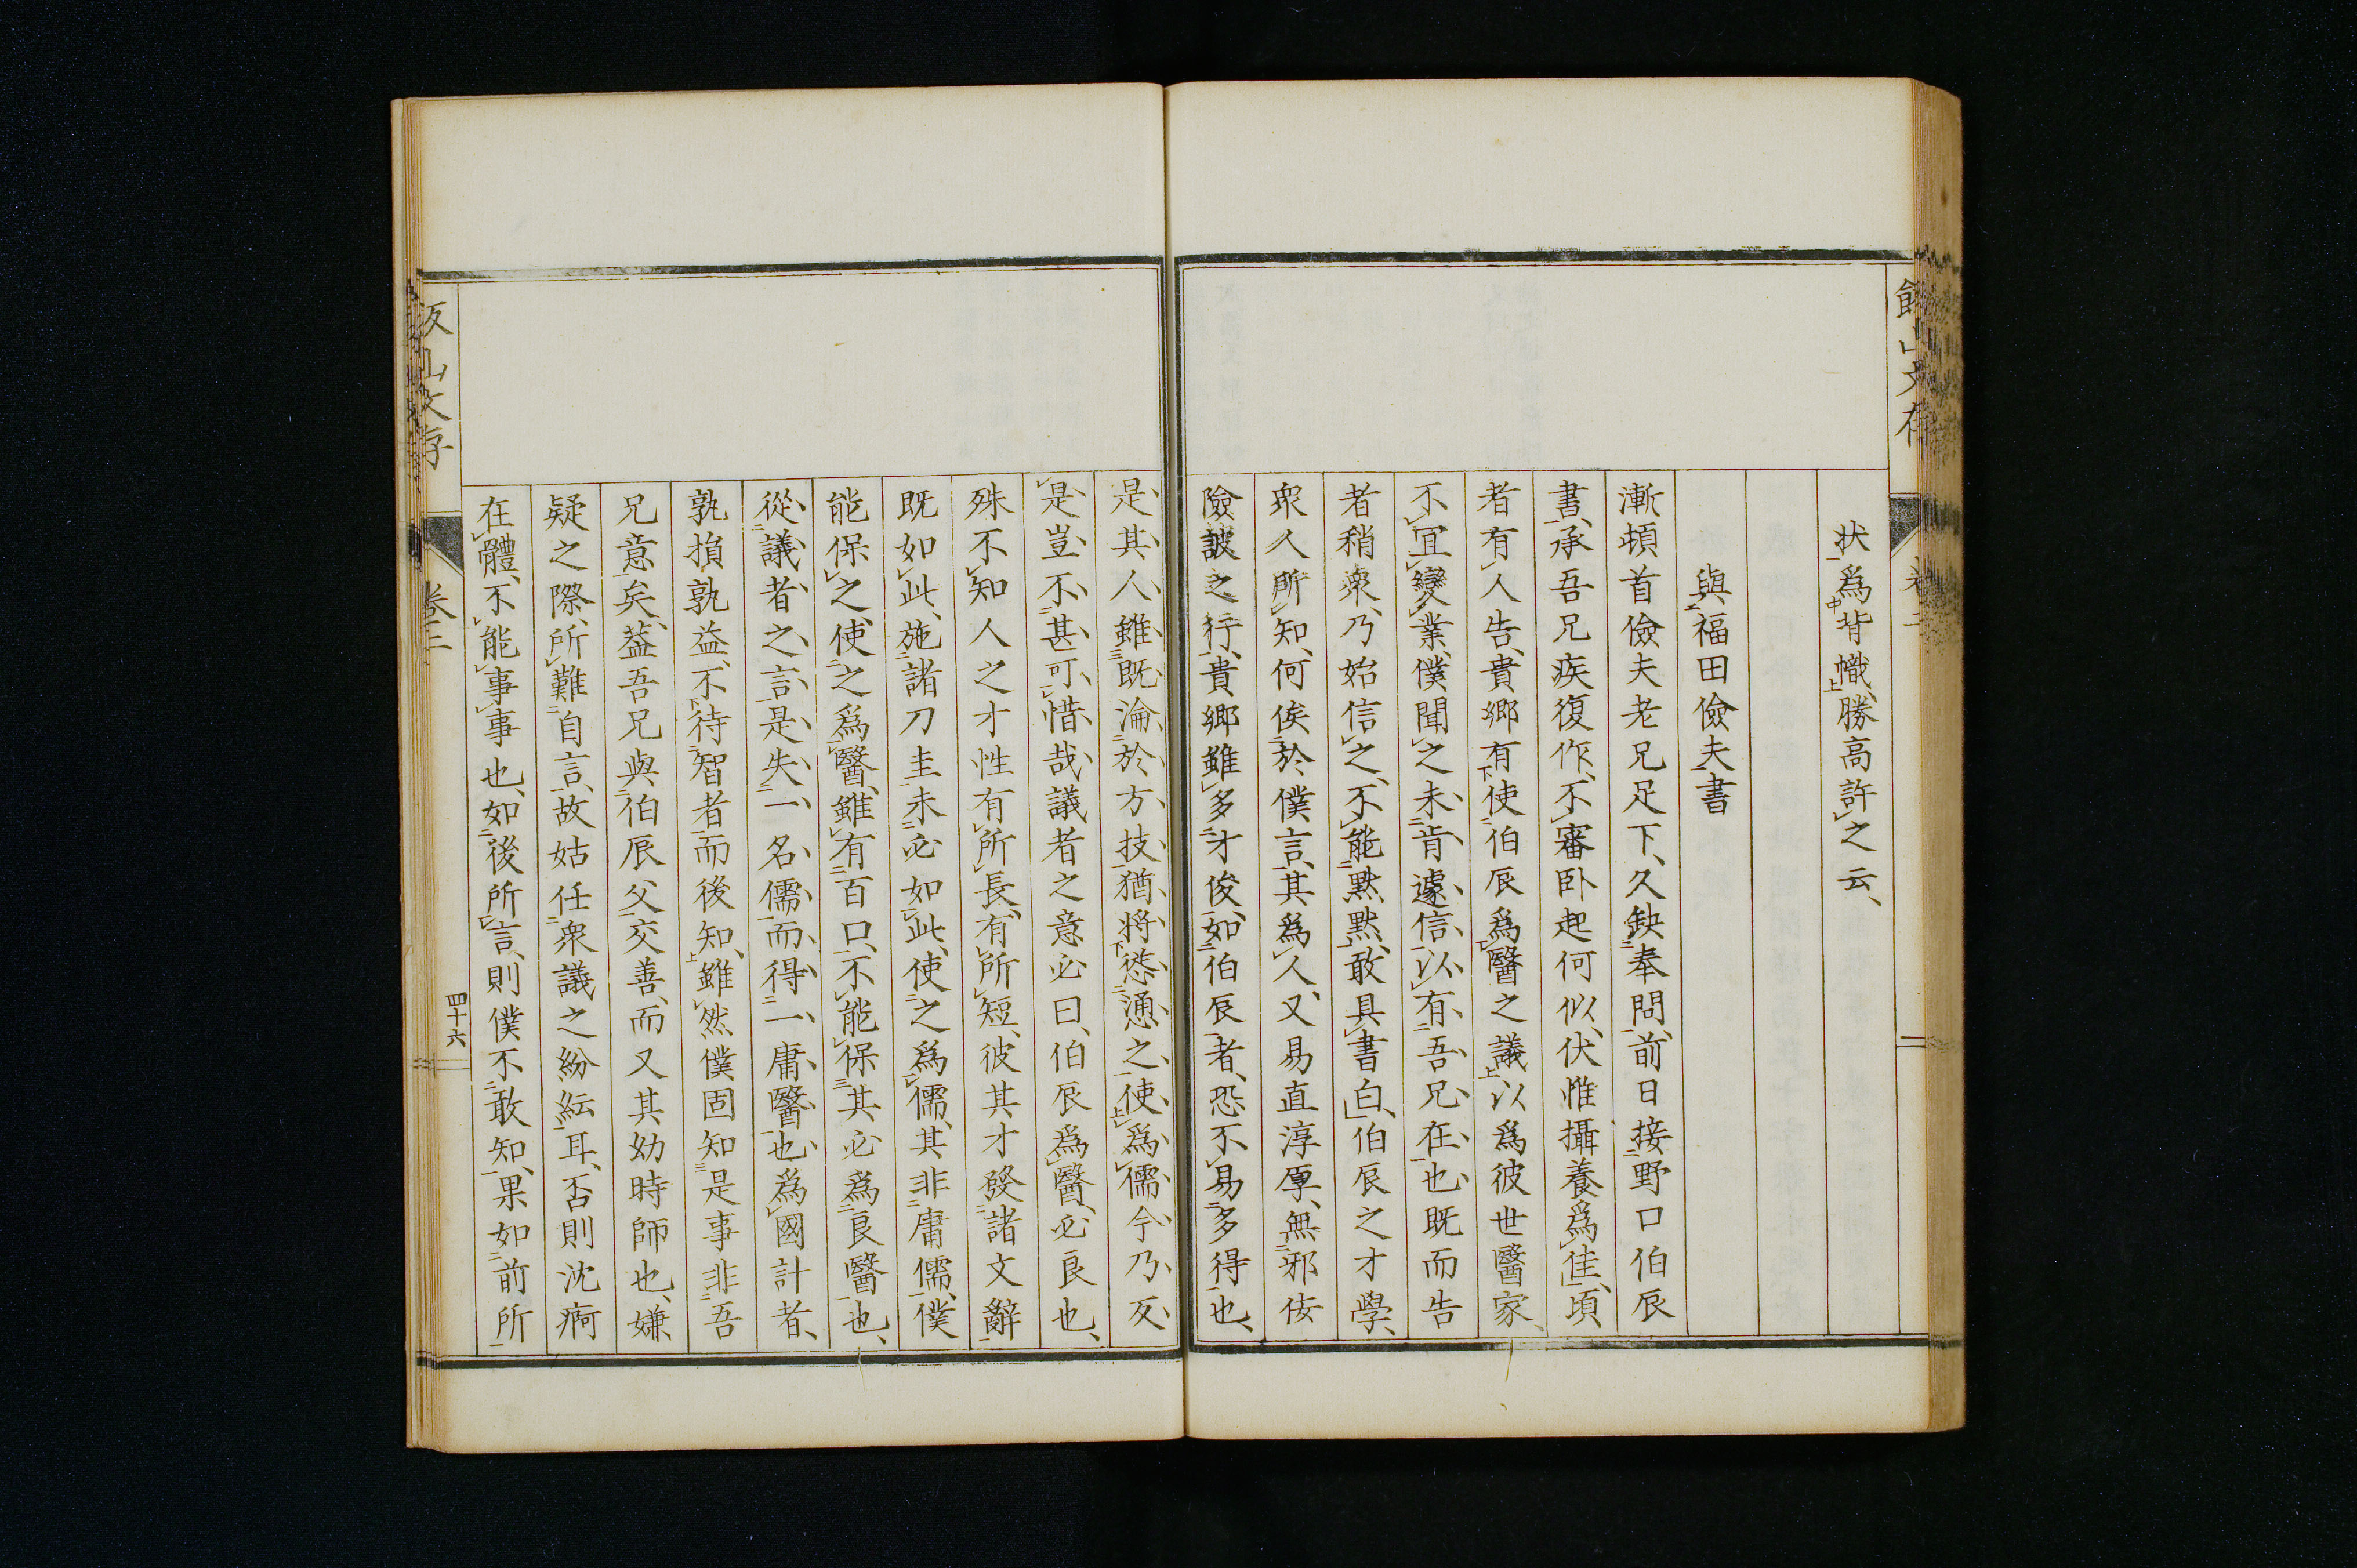 飯山文存
卷二
状爲背幟、勝高許之云、
與福田儉夫書
漸頓首儉夫老兄足下、久缺奉問、前日接野口伯辰
書、承吾兄疾復作、不審卧起何似、伏惟攝養爲佳、頃
者有人告、貴鄉有使伯辰爲醫之議、以爲彼世醫家、
不宜變業、僕聞之未肯遽信、以有吾兄在也、既而告
者稍衆、乃始信之、不能默默、敢具書白、伯辰之才學、
衆人所知、何俟於僕言、其爲人、又易直淳厚、無邪佞
險詖之行、貴鄉雖多才俊、如伯辰者、恐不易多得也、
是其人、雖既淪於方技、猶將慫慂之、使爲儒、今乃反
是、豈不甚可惜哉、議者之意必曰、伯辰爲醫、必良也、
殊不知人之才性有所長、有所短、彼其才發諸文辭
既如此、施諸刀圭、未必如此、使之爲儒、其非庸儒、僕
能保之、使之爲醫、雖有百口、不能保其必爲良醫也、
從議者之言、是失一名儒、而得一庸醫也、爲國計者、
孰損孰益、不待智者而後知、雖然僕固知是事非吾
兄意矣、蓋吾兄與伯辰父交善、而又其幼時師也、嫌
疑之際、所難自言、故姑任衆議之紛紜耳、否則沈痾
在體、不能事事也、如後所言、則僕不敢知、果如前所
飯山文存
卷二
四十六